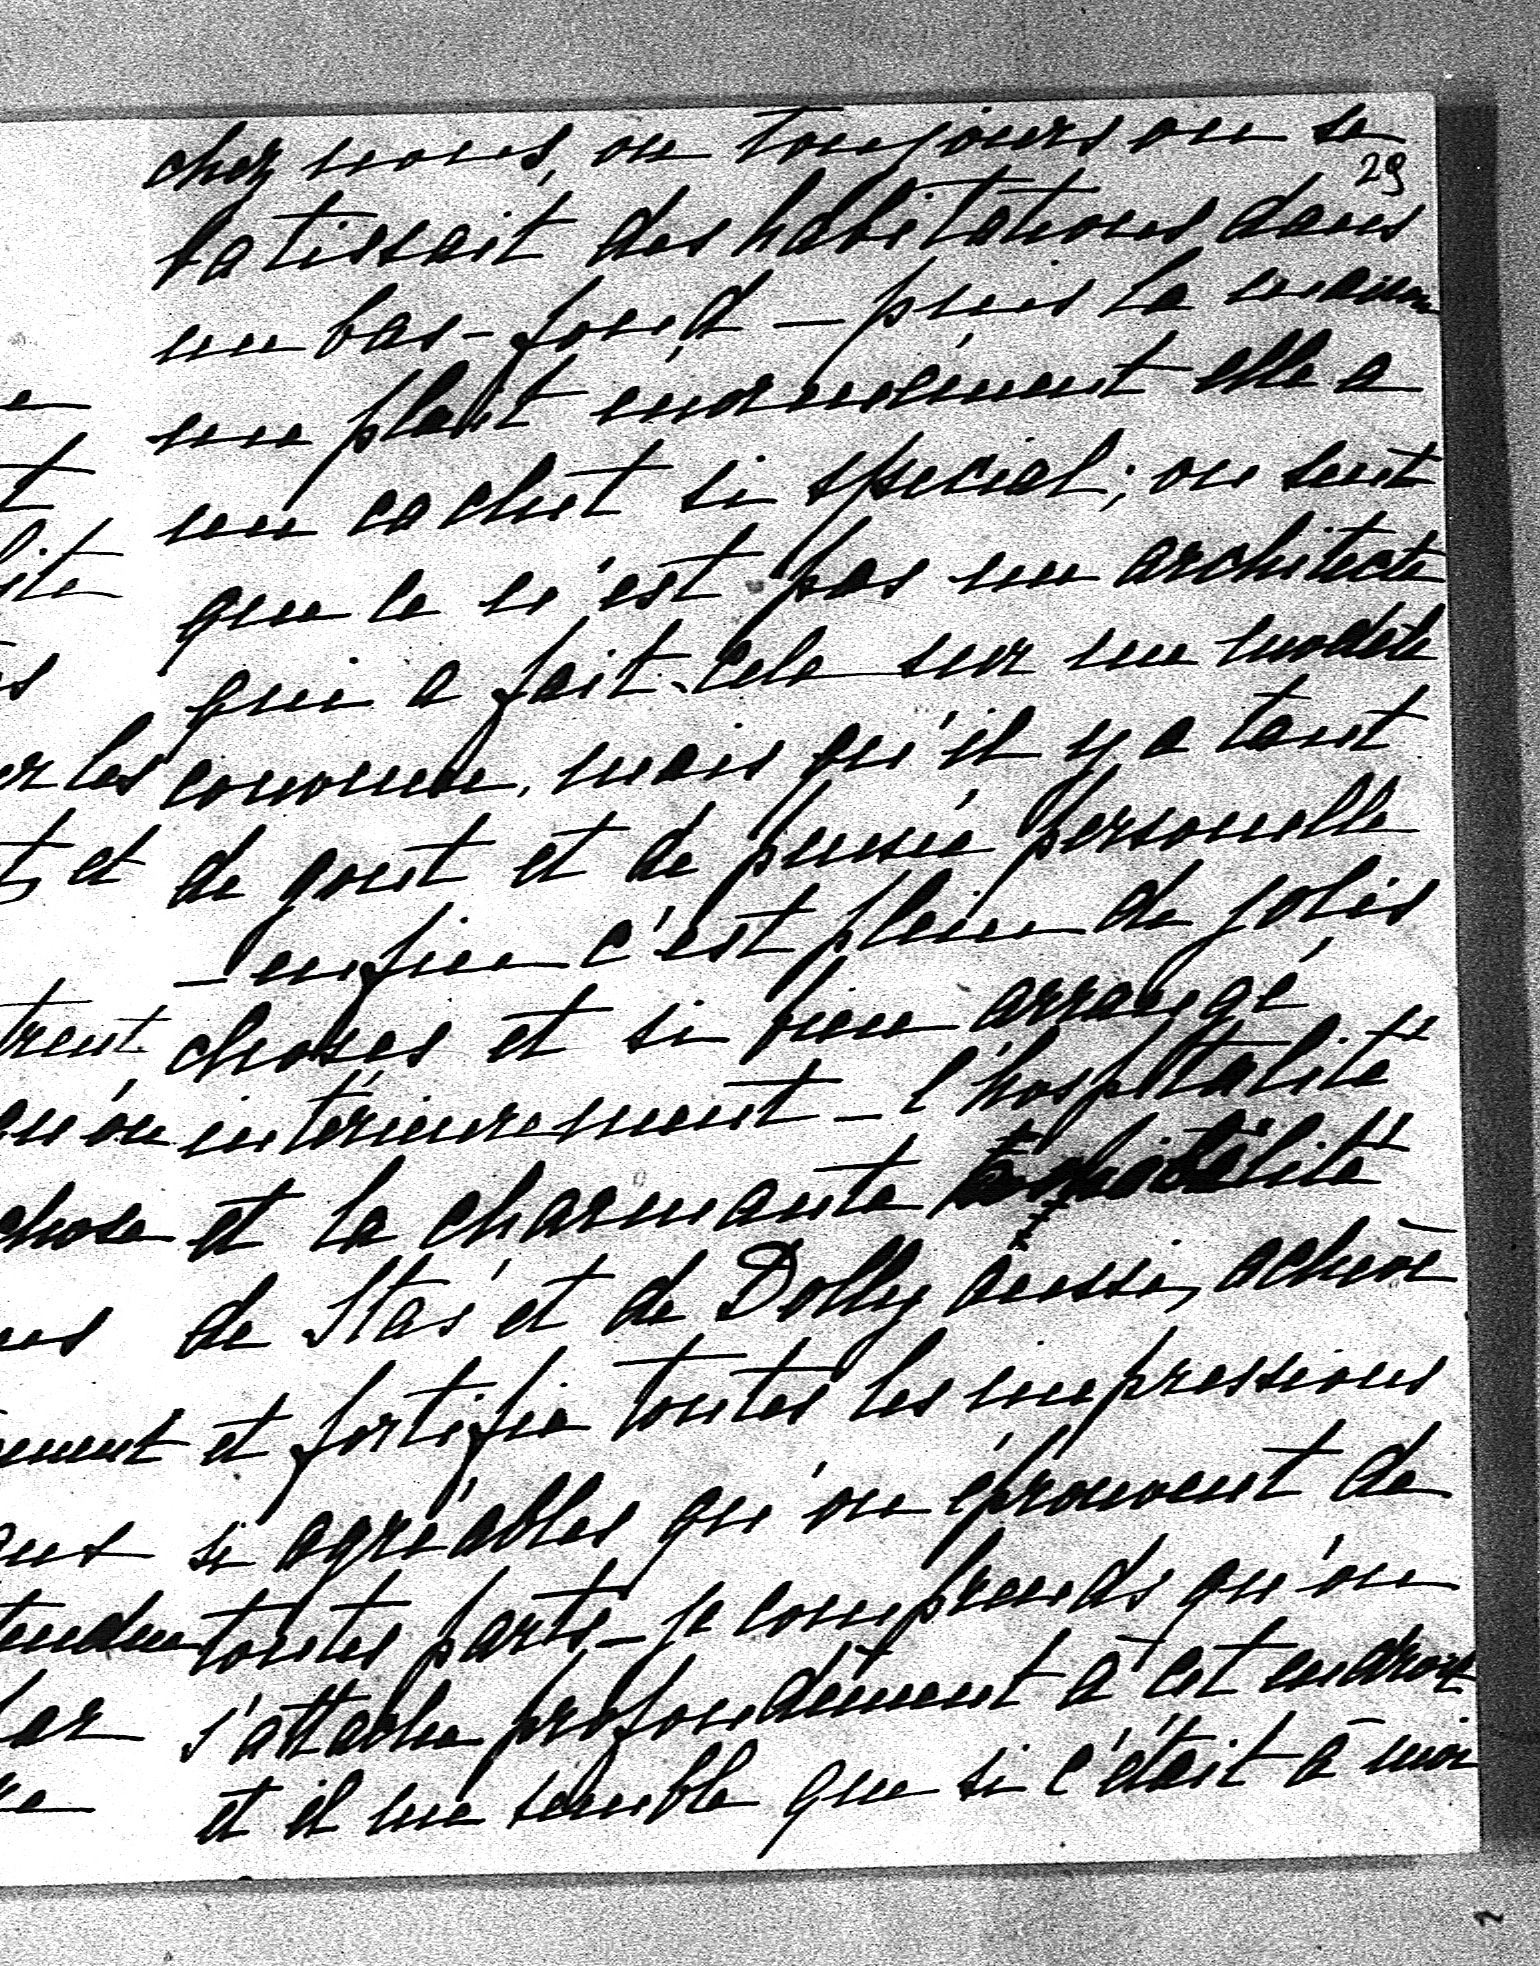 chez nous, ou toujours on se
29
batissait des habitations dans
un bas-fond — puis la maison
me plait énormément elle a
un cachet si special; on sent
que ce n'est pas un architecte
qui a fait cela sur un modèle
connue, mais qu'il y a tant
de gout et de pensée personelle
— enfin c'est plein de jolies
choses et si bien arrangé
intérieurement — l'hospitalité
et la charmante
de Stas et de Dolly aussi, achève
et fortifie toutes les impressions
si agréables qu'on éprouvent de
toutes parts — je comprends qu'on
s'attache profondément à cet endroit
et il me semble que si c'était à moi